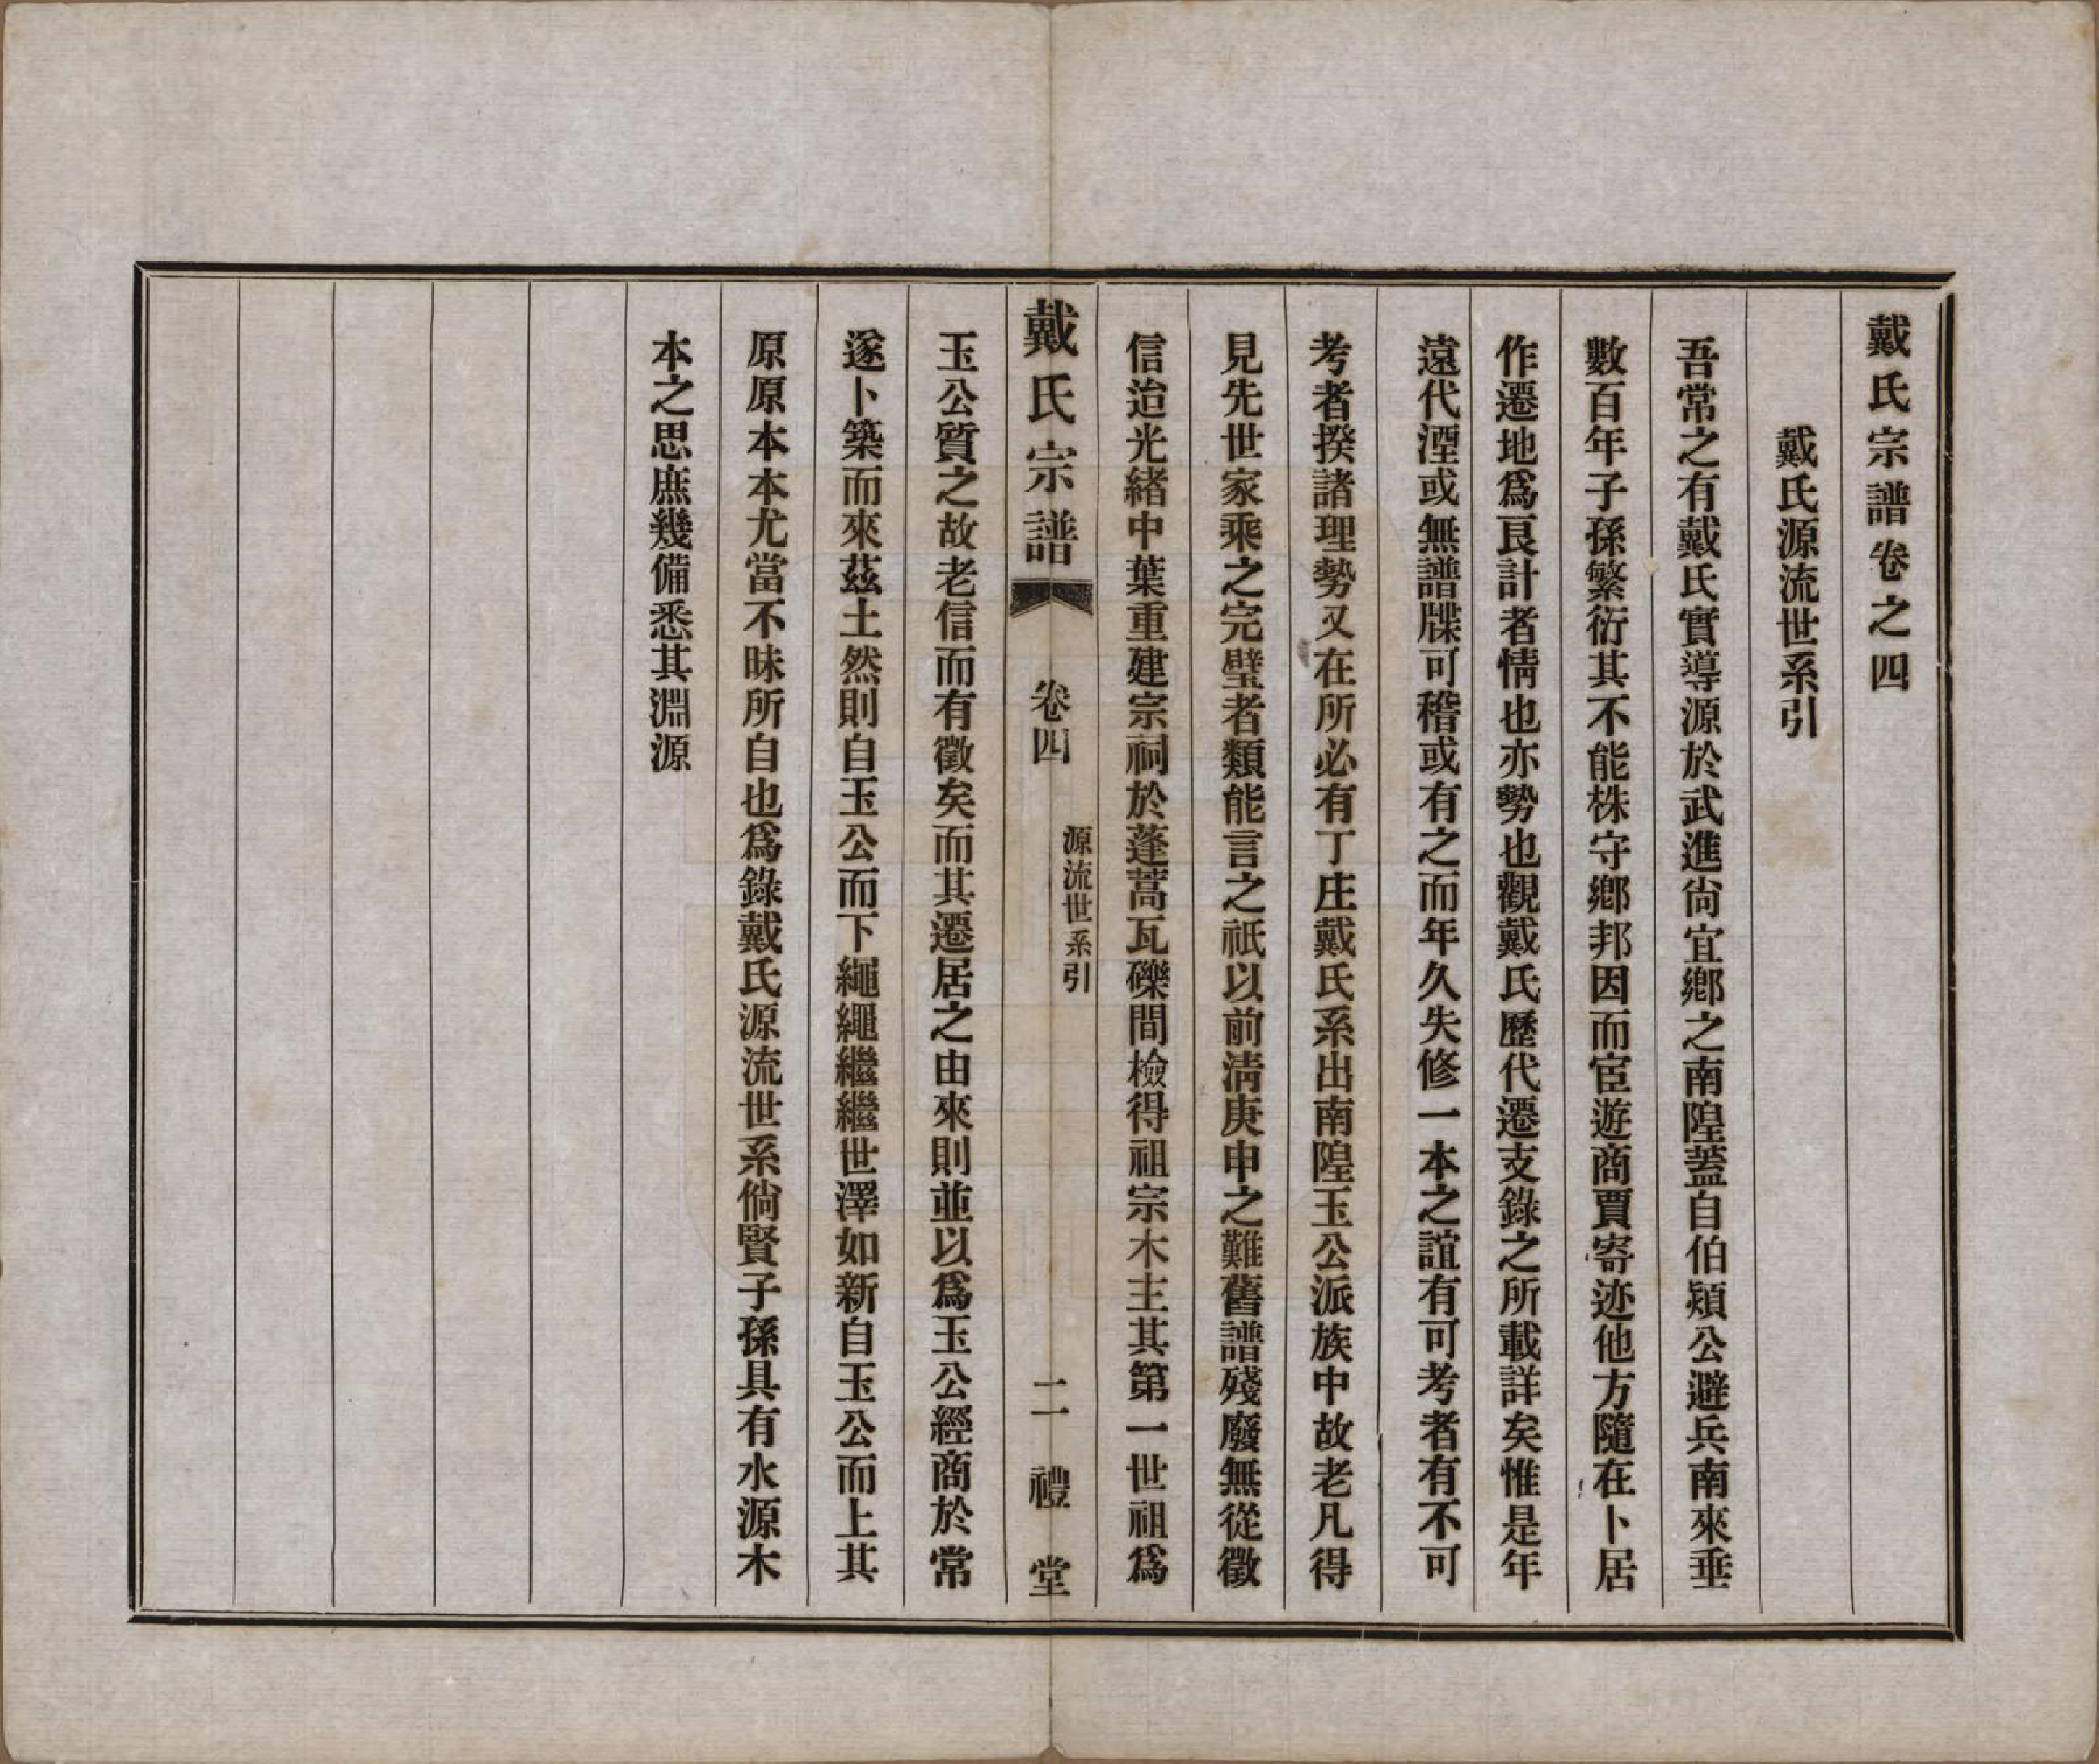 戴氏宗譜卷之四
戴氏源流世系引
吾常之有戴氏實導源於武進尙宜鄕之南隍蓋自伯頴公避兵南來垂
數百年子孫繁衍其不能株守鄕邦因而宦遊商賈寄迹他方隨在卜居
作遷地爲良計者情也亦勢也觀戴氏歷代遷支錄之所載詳矣惟是年
遠代湮或無譜牒可稽或有之而年久失修一本之誼有可考者有不可
考者揆諸理勢又在所必有丁庄戴氏系出南隍玉公派族中故老凡得
見先世家乘之完璧者類能言之祇以前淸庚申之難舊譜殘廢無從徵
信治光緒中葉重建宗祠於蓬蒿瓦礫間檢得祖宗木主其第一世祖爲
戴氏宗譜 卷四 源流世系引 一 二禮堂
玉公質之故老信而有徵矣而其遷居之由來則並以爲玉公經商於常
遂卜築而來茲土然則自玉公而下繩繩繼繼世澤如新自玉公而上其
原原本本尤當不昧所自也爲錄戴氏源流世系倘賢子孫具有水源木
本之思庶幾備悉其淵源